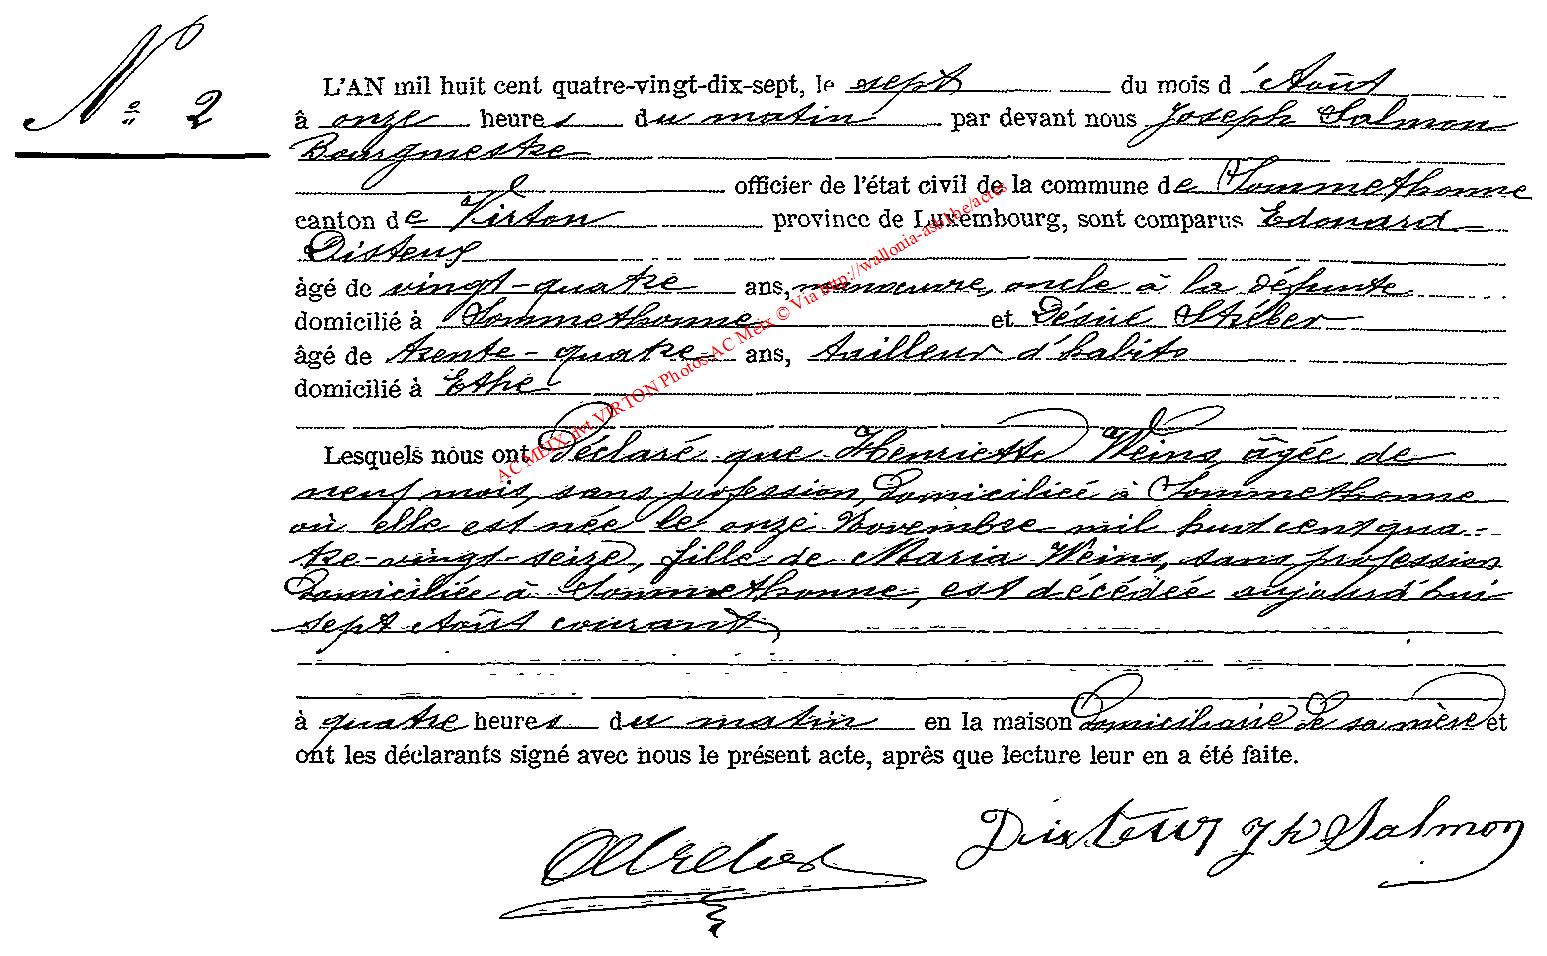 N° 2
L'AN mil huit cent quatre-vingt-dix-sept, le sept du mois d'Août
à onze heures du matin par devant nous Joseph Salmon
Bourgmestre
officier de l'état civil de la commune de Sommethonne
canton de Virton province de Luxembourg, sont comparus Edouard
Disteux
âgé de vingt-quatre ans, manœuvre, oncle à la défunte
domicilié à Sommethonne et Désiré Stréber
âgé de trente-quatre ans, tailleur d'habits
domicilié à Ethe
Lesquels nous ont Déclaré que Henriette Weins, âgée de
neuf mois, sans profession, Domiciliée à Sommethonne
où elle est née le onze Novembre mil huit cent qua-
tre-vingt-seize, fille de Maria Weins, sans profession
Domiciliée à Sommethonne, est décédée aujourd'hui
sept Août courant
à quatre heures du matin en la maison Domiciliaire de sa mère et
ont les déclarants signé avec nous le présent acte, après que lecture leur en a été faite.
Disteux Jh Salmon
AC MEIX dvt VIRTON Photos AC Meix © Via http://wallonia-asbl.be/actes